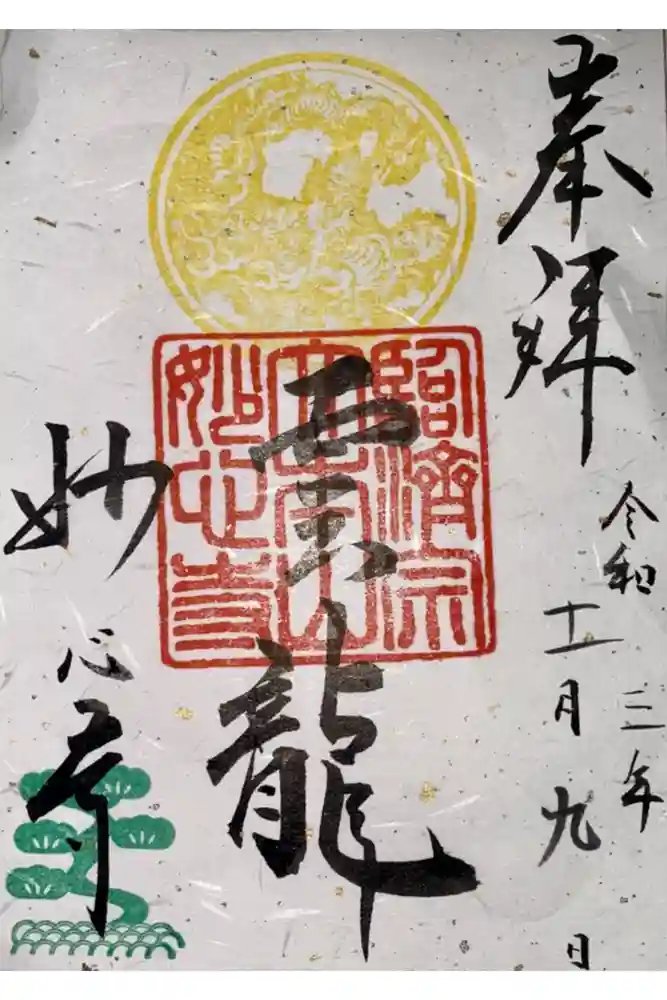 奉拝
令和三年
十一月九日
臨濟宗
大本山
妙心寺
雲龍
妙心寺